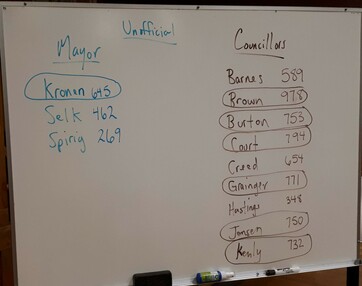 Unofficial
Mayor
Kronen 645
Selk 462
Spirig 269
Councillors
Barnes 589
Brown 978
Burton 753
Court 794
Creed 654
Grainger 771
Hastings 348
Jensen 750
Kenly 732